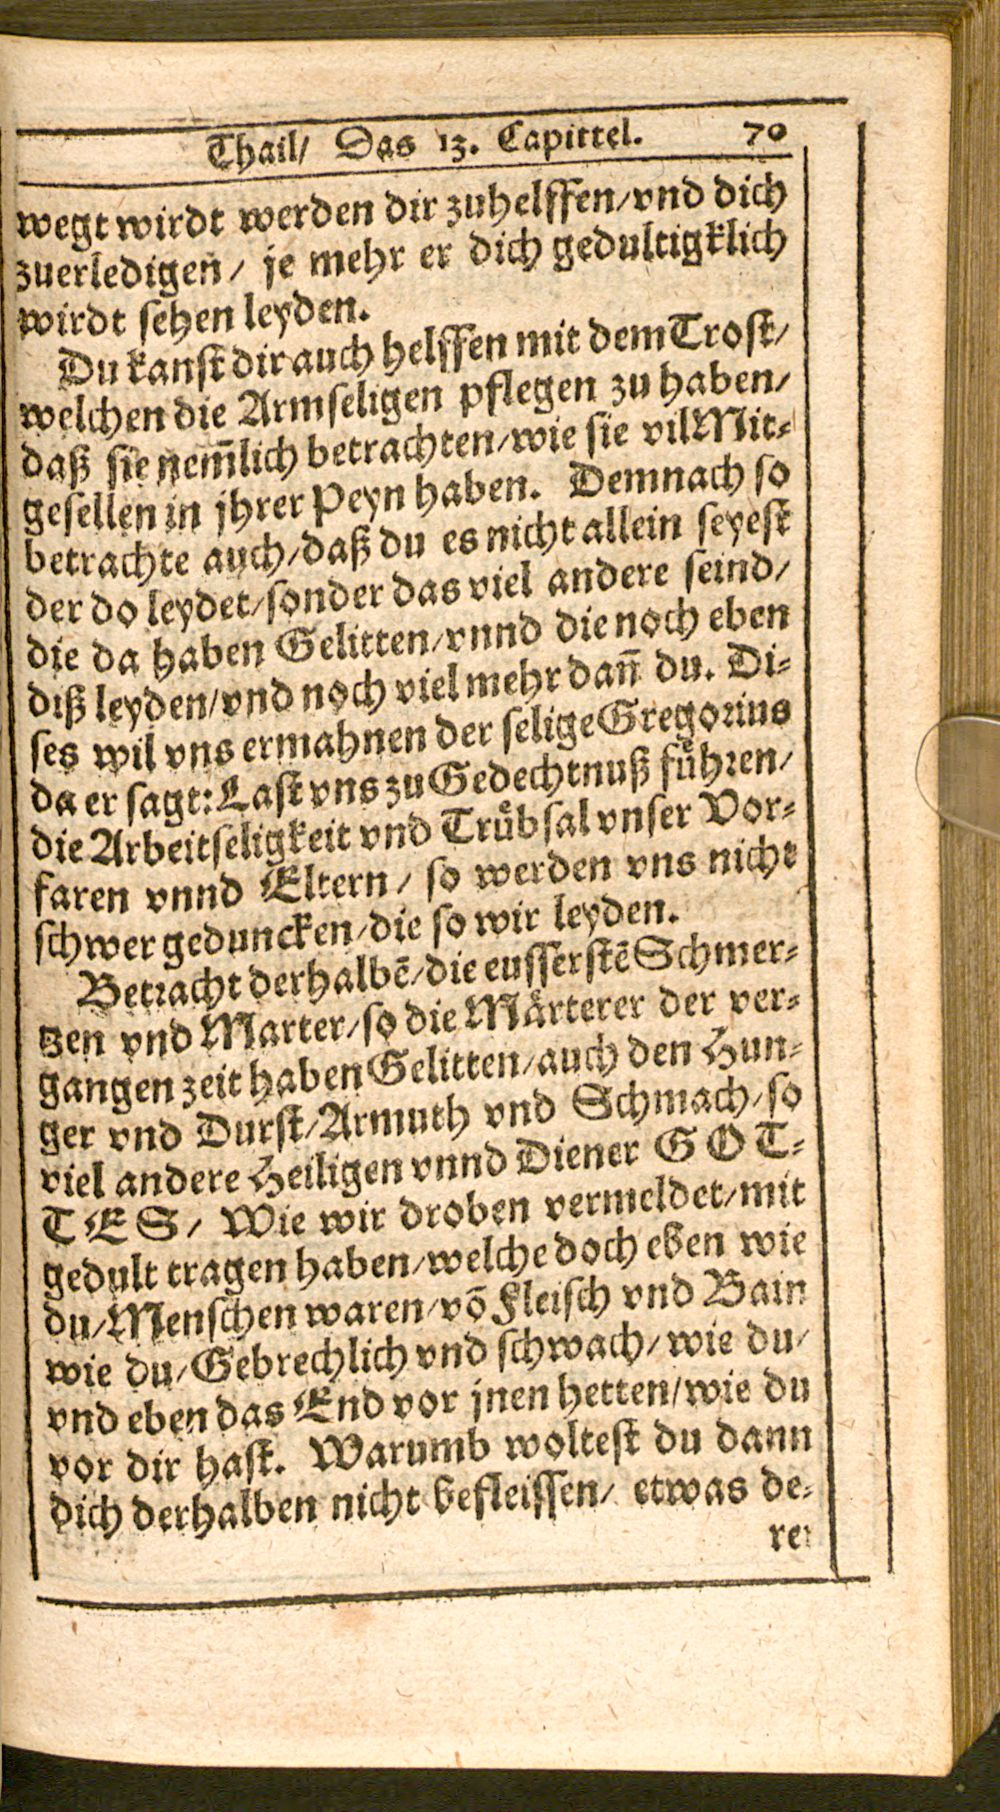 Thail/ Das 13. Capittel. 70
wegt wirdt werden dir zuhelffen/vnd dich
zuerledigen̄/ je mehr er dich gedultigklich
wirdt sehen leyden.
Du kanst dir auch helffen mit dem Trost/
welchen die Armseligen pflegen zu haben/
daß sie nem̄lich betrachten/wie sie vil Mit-
gesellen in jhrer Peyn haben. Demnach so
betrachte auch/daß du es nicht allein seyest
der do leydet/sonder das viel andere seind/
die da haben Gelitten/vnnd die noch eben
diß leyden/vnd noch viel mehr dan̄ du. Di-
ses wil vns ermahnen der selige Gregorius
da er sagt: Last vns zu Gedechtnuß fuͤhren/
die Arbeitseligkeit vnd Truͤbsal vnser Vor-
faren vnnd Eltern/ so werden vns nicht
schwer geduncken/die so wir leyden.
Betracht derhalbē/die eusserstē Schmer-
tzen vnd Marter/so die Maͤrterer der ver-
gangen zeit haben Gelitten/auch den Hun-
ger vnd Durst/Armuth vnd Schmach/so
viel andere Heiligen vnnd Diener GOT-
TES/ Wie wir droben vermeldet/mit
gedult tragen haben/welche doch eben wie
du/Menschen waren/vō Fleisch vnd Bain
wie du/Gebrechlich vnd schwach/wie du/
vnd eben das End vor jnen hetten/wie du
vor dir hast. Warumb woltest du dann
dich derhalben nicht befleissen/ etwas de-
rer